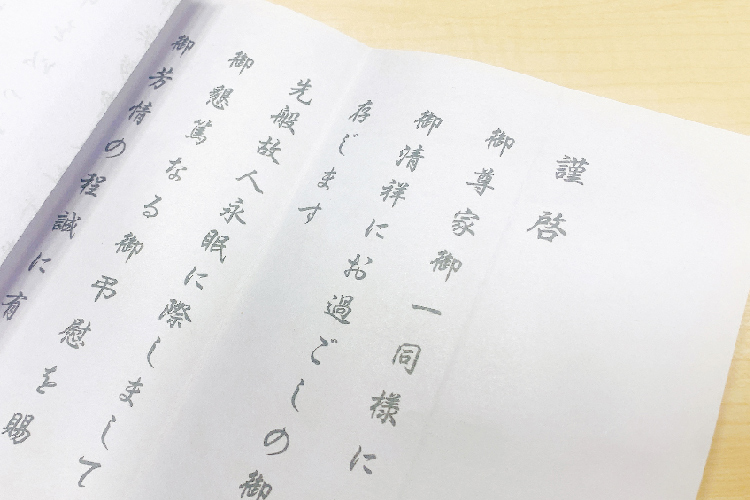 謹啓
御尊家御一同様に
御清祥にお過ごしの御
存じます
先般故人永眠に際しまして
御懇篤なる御弔慰を賜
御芳情の程誠に有